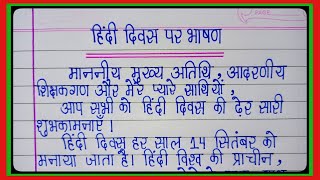 हिंदी दिवस पर भाषण
माननीय मुख्य अतिथि, आदरणीय
शिक्षकगण और मेरे प्यारे साथियों,
आप सभी को हिंदी दिवस की ढ़ेर सारी
शुभकामनाएँ।
हिंदी दिवस हर साल 14 सितंबर को
मनाया जाता है। हिंदी विश्व की प्राचीन,